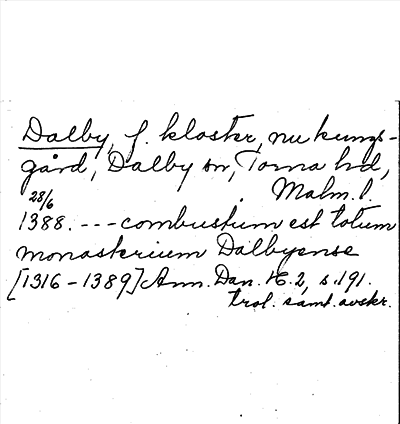 Dalby, f. kloster, nu kungs-
gård, Dalby sn, Torna hd,
Malm. l.
28/6
1388. --- combustum est totum
monasterium Dalbyense
[1316-1389] Ann. Dan. 16.2, s. 191.
trol. samt. avskr.